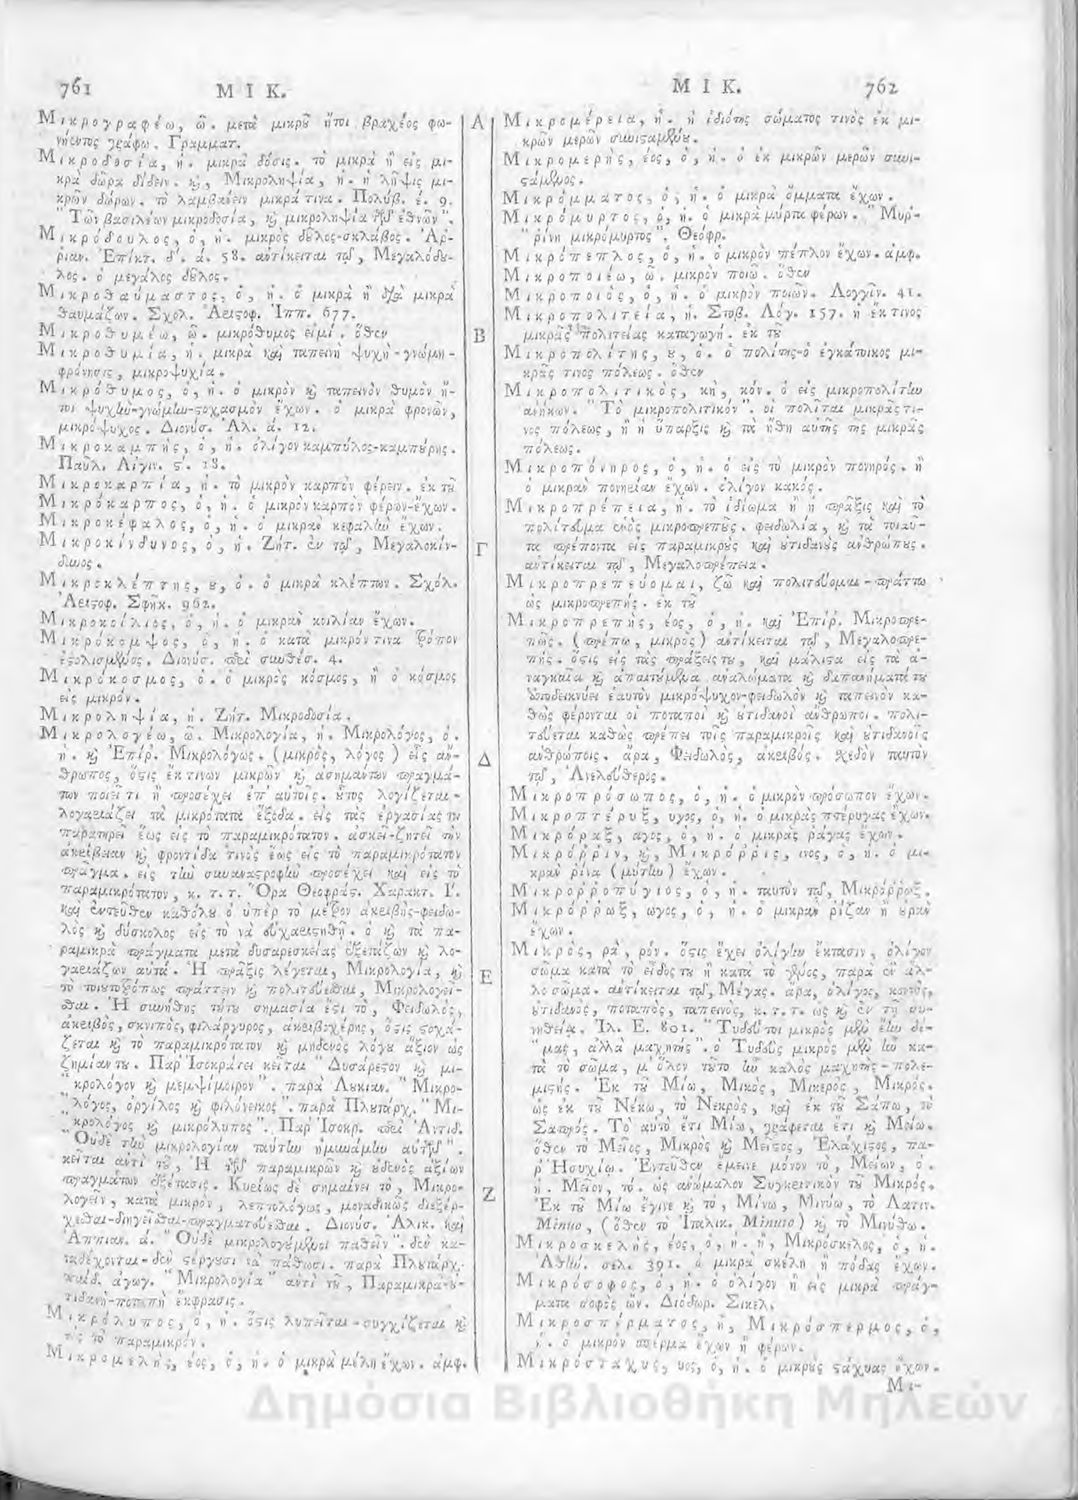 761 ΜΙΚ.
Μικρογραφέω, ῶ. μετὰ μικροῦ ἤτοι βραχέος φω-
νήεντος γράφω. Γραμματ.
Μικροδοσία, ἡ. μικρὰ δόσις. τὸ μικρὰ ἢ εἰς μι-
κρὰ δῶρα δίδειν. καὶ, Μικροληψία, ἡ. ἡ λῆψις μι-
κρῶν δώρων. τὸ λαμβάνειν μικρά τινα. Πολύβ. έ. 9.
"Τῶν βασιλέων μικροδοσία, καὶ μικροληψία τῶν ἐθνῶν".
Μικρόδουλος, ὁ, ἡ. μικρὸς δοῦλος-σκλάβος. Ἀρ-
ριαν. Ἐπίκτ. δ'. ά. 58. ἀντίκειται τῷ, Μεγαλόδου-
λος. ὁ μεγάλος δοῦλος.
Μικροθαύμαστος, ὁ, ἡ. ὁ μικρὰ ἢ διὰ μικρὰ
θαυμάζων. Σχολ. Ἀριστοφ. Ἱππ. 677.
Μικροθυμέω, ῶ. μικρόθυμος εἰμί. ὅθεν
Μικροθυμία, ἡ. μικρὰ καὶ ταπεινὴ ψυχὴ-γνώμη-
φρόνησις, μικροψυχία.
Μικρόθυμος, ὁ, ἡ. ὁ μικρὸν καὶ ταπεινὸν θυμὸν ἤ-
τοι ψυχὴν-γνώμην-στοχασμὸν ἔχων. ὁ μικρὰ φρονῶν,
μικρόψυχος. Διονύσ. Ἁλ. ά. 12.
Μικροκαμπὴς, ὁ, ἡ. ὀλίγον καμπύλος-καμπούρης.
Παῦλ. Αἰγιν. ς'. 18.
Μικροκαρπία, ἡ. τὸ μικρὸν καρπὸν φέρειν. ἐκ τοῦ
Μικρόκαρπος, ὁ, ἡ. ὁ μικρὸν καρπὸν φέρων-ἔχων.
Μικροκέφαλος, ὁ, ἡ. ὁ μικρὰν κεφαλὴν ἔχων.
Μικροκίνδυνος, ὁ, ἡ. Ζήτ. ἐν τῷ, Μεγαλοκίν-
δυνος.
Μικροκλέπτης, ου, ὁ. ὁ μικρὰ κλέπτων. Σχόλ.
Ἀριστοφ. Σφῆκ. 962.
Μικροκοίλιος, ὁ, ἡ. ὁ μικρὰν κοιλίαν ἔχων.
Μικρόκομψος, ὁ, ἡ. ὁ κατὰ μικρόν τινα τρόπον
στολισμένος. Διονύσ. περὶ συνθέσ. 4.
Μικρόκοσμος, ὁ. ὁ μικρὸς κόσμος, ἢ ὁ κόσμος
εἰς μικρόν.
Μικροληψία, ἡ. Ζήτ. Μικροδοσία.
Μικρολογέω, ῶ. Μικρολογία, ἡ. Μικρολόγος, ὁ.
ἡ. καὶ Ἐπίρ. Μικρολόγως. (μικρὸς, λόγος) εἷς ἄν-
θρωπος, ὅστις ἔκ τινων μικρῶν καὶ ἀσημάντων πραγμά-
των ποιεῖ τι ἢ προσέχει ἐπ' αὐτοῖς. οὗτος λογίζεται-
λογαριάζει τὰ μικρότατα ἔξοδα. εἰς τὰς ἐργασίας του
παρατηρεῖ ἕως εἰς τὸ παραμικρότατον. ἀσκεῖ-ζητεῖ τὴν
ἀκρίβειαν καὶ φροντίδα τινὸς ἕως εἰς τὸ παραμικρότατον
πρᾶγμα. εἰς τὴν συναναστροφὴν προσέχει καὶ εἰς τὸ
παραμικρότατον, κ. τ. τ. Ὅρα Θεοφράς. Χαρακτ. Ι'.
καὶ ἐντεῦθεν καθόλου ὁ ὑπὲρ τὸ μέτρον ἀκριβὴς-φειδω-
λὸς καὶ δύσκολος εἰς τὸ νὰ εὐχαριστηθῇ. ὁ καὶ τὰ πα-
ραμικρὰ πράγματα μετὰ δυσαρεσκείας ἐξετάζων καὶ λο-
γαριάζων αὐτά. Ἡ πρᾶξις λέγεται, Μικρολογία, καὶ
τὸ τοιουτοτρόπως πράττειν καὶ πολιτεύεσθαι, Μικρολογεῖ-
σθαι. Ἡ συνήθης τούτου σημασία ἐστὶ τὸ, Φειδωλὸς,
ἀκριβὸς, σκνιπὸς, φιλάργυρος, ἀκριβοχέρης, ὅστις στοχά-
ζεται καὶ τὸ παραμικρότατον καὶ μηδενὸς λόγου ἄξιον ὡς
ζημίαν του. Παρ' Ἰσοκράτει κεῖται "Δυσάρεστον καὶ μι-
"κρολόγον καὶ μεμψίμοιρον". παρὰ Λουκιαν. "Μικρο-
"λόγος, ὀργίλος καὶ φιλόνεικος". παρὰ Πλουτάρχ. "Μι-
κρολόγος καὶ μικρόλυπος". Παρ' Ἰσοκρ. περὶ Ἀντιδ.
"Οὐδὲ τὴν μικρολογίαν ταύτην ἠμυνάμην αὐτῶν".
κεῖται ἀντὶ τοῦ, Ἡ τῶν παραμικρῶν καὶ οὐδενὸς ἀξίων
πραγμάτων ἐξέτασις. Κυρίως δὲ σημαίνει τὸ, Μικρο-
λογεῖν, κατὰ μικρὸν, λεπτολόγως, μοναδικῶς διεξέρ-
χεσθαι-διηγεῖσθαι-πραγματεύεσθαι. Διονύσ. Ἁλικ. καὶ
Ἀππιαν. ά. "Οὐδὲ μικρολογούμενοι παθεῖν". δὲν κα-
ταδέχονται-δὲν στέργουσι νὰ πάθωσι. παρὰ Πλουτάρχ.
παιδ. ἀγωγ. "Μικρολογία" ἀντὶ τοῦ, Παραμικρὰ-οὐ-
τιδανὴ-ποταπὴ ἔκφρασις.
Μικρόλυπος, ὁ, ἡ. ὅστις λυπεῖται-συγχίζεται καὶ
εἰς τὸ παραμικρόν.
Μικρομελὴς, έος, ὁ, ἡ. ὁ μικρὰ μέλη ἔχων. ἀμφ.
Α
Β
Γ
Δ
Ε
Ζ
ΜΙΚ. 762
Μικρομέρεια, ἡ. ἡ ἰδιότης σώματος τινὸς ἐκ μι-
κρῶν μερῶν συνισταμένου.
Μικρομερὴς, έος, ὁ, ἡ. ὁ ἐκ μικρῶν μερῶν συνι-
στάμενος.
Μικρόμματος, ὁ, ἡ. ὁ μικρὰ ὄμματα ἔχων.
Μικρόμυρτος, ὁ, ἡ. ὁ μικρὰ μύρτα φέρων. "Μυρ-
"ρίνη μικρόμυρτος". Θεόφρ.
Μικρόπεπλος, ὁ, ἡ. ὁ μικρὸν πέπλον ἔχων. ἀμφ.
Μικροποιέω, ῶ. μικρὸν ποιῶ. ὅθεν
Μικροποιὸς, ὁ, ἡ. ὁ μικρὸν ποιῶν. Λογγῖν. 41.
Μικροπολιτεία, ἡ. Στοβ. Λόγ. 157. ἡ ἔκ τινος
μικρᾶς πολιτείας καταγωγή. ἐκ τοῦ
Μικροπολίτης, ου, ὁ. ὁ πολίτης-ὁ ἐγκάτοικος μι-
κρᾶς τινος πόλεως. ὅθεν
Μικροπολιτικὸς, κὴ, κόν. ὁ εἰς μικροπολίτην
ἀνήκων. "Τὸ μικροπολιτικόν". οἱ πολῖται μικρᾶς τι-
νος πόλεως, ἢ ἡ ὕπαρξις καὶ τὰ ἤθη αὐτῆς τῆς μικρᾶς
πόλεως.
Μικροπόνηρος, ὁ, ἡ. ὁ εἰς τὸ μικρὸν πονηρός. ἢ
ὁ μικρὰν πονηρίαν ἔχων. ὀλίγον κακός.
Μικροπρέπεια, ἡ. τὸ ἰδίωμα ἢ ἡ πρᾶξις καὶ τὸ
πολίτευμα ἑνὸς μικροπρεποῦς. φειδωλία, καὶ τὰ τοιαῦ-
τα πρέποντα εἰς παραμικροὺς καὶ οὐτιδανοὺς ἀνθρώπους.
ἀντίκειται τῷ, Μεγαλοπρέπεια.
Μικροπρεπεύομαι, ζῶ καὶ πολιτεύομαι-πράττω
ὡς μικροπρεπής. ἐκ τοῦ
Μικροπρεπὴς, έος, ὁ, ἡ. καὶ Ἐπίρ. Μικροπρε-
πῶς. (πρέπω, μικρὸς) ἀντίκειται τῷ, Μεγαλοπρε-
πής. ὅστις εἰς τὰς πράξεις του, καὶ μάλιστα εἰς τὰ ἀ-
ναγκαῖα καὶ ἀπαιτούμενα ἀναλώματα καὶ δαπανήματά του
ἀποδεικνύει ἑαυτὸν μικρόψυχον-φειδωλὸν καὶ ταπεινὸν κα-
θὼς φέρονται οἱ ποταποὶ καὶ οὐτιδανοὶ ἄνθρωποι. πολι-
τεύεται καθὼς πρέπει τοῖς παραμικροῖς καὶ οὐτιδανοῖς
ἀνθρώποις. ἄρα, Φειδωλὸς, ἀκριβός. σχεδὸν ταυτὸν
τῷ, Ἀνελεύθερος.
Μικροπρόσωπος, ὁ, ἡ. ὁ μικρὸν πρόσωπον ἔχων.
Μικροπτέρυξ, υγος, ὁ, ἡ. ὁ μικρὰς πτέρυγας ἔχων.
Μικρόραξ, αγος, ὁ, ἡ. ὁ μικρὰς ῥάγας ἔχων.
Μικρόῤῥιν, καὶ, Μικρόῤῥις, ινος, ὁ, ἡ. ὁ μι-
κρὰν ῥῖνα (μύτην) ἔχων.
Μικροῤῥοπύγιος, ὁ, ἡ. ταυτὸν τῷ, Μικρόῤῥωξ.
Μικρόῤῥωξ, ωγος, ὁ, ἡ. ὁ μικρὰν ῥίζαν ἢ οὐρὰν
ἔχων.
Μικρὸς, ρὰ, ρόν. ὅστις ἔχει ὀλίγην ἔκτασιν, ὀλίγον
σῶμα κατὰ τὸ εἶδός του ἢ κατὰ τὸ γένος, παρὰ ἓν ἄλ-
λο σῶμα. ἀντίκειται τῷ, Μέγας. ἄρα, ὀλίγος, κοντὸς,
οὐτιδανὸς, ποταπὸς, ταπεινὸς, κ. τ. τ. ὡς καὶ ἐν τῇ συ-
νηθείᾳ. Ἰλ. Ε. 801. "Τυδεύς τοι μικρὸς μὲν ἔην δέ-
"μας, ἀλλὰ μαχητής". ὁ Τυδεὺς μικρὸς μὲν ἦν κα-
τὰ τὸ σῶμα, μ' ὅλον τοῦτο ἦν καλὸς μαχητὴς-πολε-
μιστής. Ἐκ τοῦ Μίω, Μικὸς, Μικερὸς, Μικρός.
ὡς ἐκ τοῦ Νέκω, τὸ Νεκρὸς, καὶ ἐκ τοῦ Σάπω, τὸ
Σαπρός. Τὸ αὐτὸ ἐστὶ Μίω, γράφεται ἔτι καὶ Μείω.
ὅθεν τὸ Μεῖος, Μικρὸς καὶ Μεῖστος, Ἐλάχιστος, πα-
ρ' Ἡσυχίῳ. Ἐντεῦθεν ἔμεινε μόνον τὸ, Μείων, ὁ.
ἡ. Μεῖον, τό. ὡς ἀνώμαλον Συγκριτικὸν τοῦ Μικρός.
Ἐκ τοῦ Μίω ἔγινε καὶ τὸ, Μίνω, Μινύω, τὸ Λατιν.
Minuo, (ὅθεν τὸ Ἰταλικ. Minuto) καὶ τὸ Μινύθω.
Μικροσκελὴς, έος, ὁ, ἡ. ἢ, Μικρόσκελος, ὁ, ἡ.
Ἀθήν. σελ. 391. ὁ μικρὰ σκέλη ἢ πόδας ἔχων.
Μικρόσοφος, ὁ, ἡ. ὁ ὀλίγον ἢ εἰς μικρὰ πράγ-
ματα σοφὸς ὤν. Διόδωρ. Σικελ.
Μικροσπέρματος, ἢ, Μικρόσπερμος, ὁ,
ἡ. ὁ μικρὸν σπέρμα ἔχων ἢ φέρων.
Μικρόσταχυς, υος, ὁ, ἡ. ὁ μικροὺς στάχυας ἔχων.
Μι-
Δημόσια Βιβλιοθήκη Μηλεών